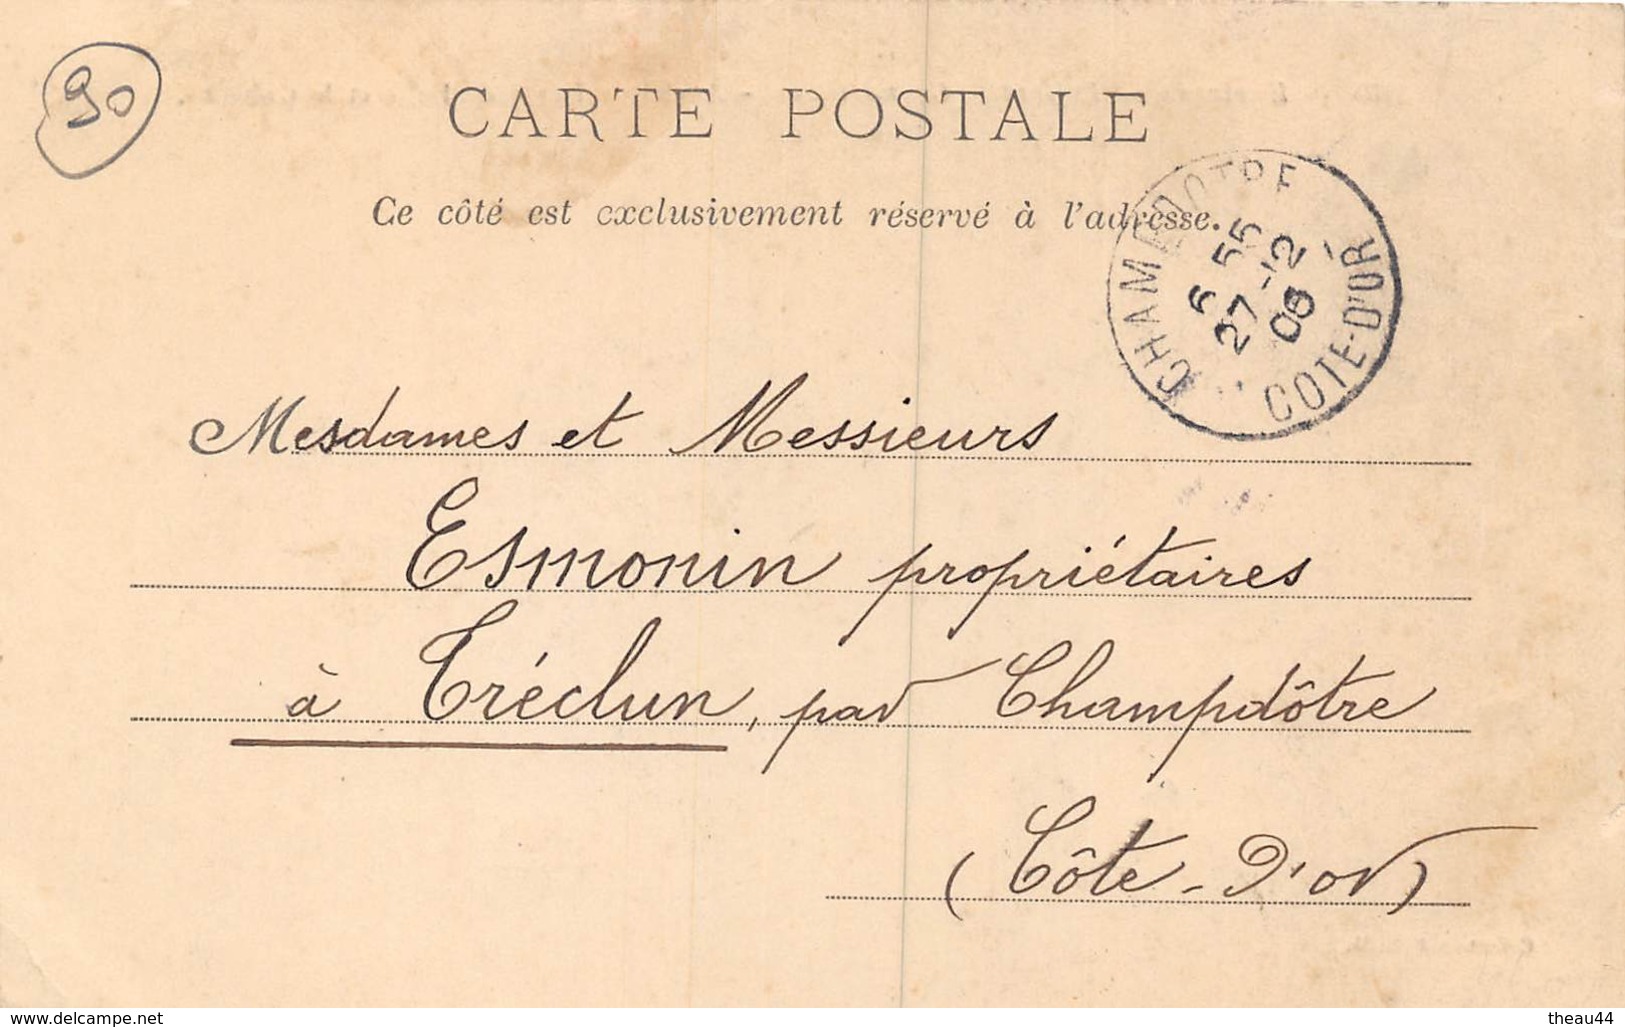 90
CARTE POSTALE
Ce côté est exclusivement réservé à l'adresse.
CHAMPDOTRE
6 55
27 -12
06
COTE-D'OR
Mesdames et Messieurs
Esmonin propriétaires
à Tréclun, par Champdôtre
(Côte-D'or)
www.delcampe.net
theau44